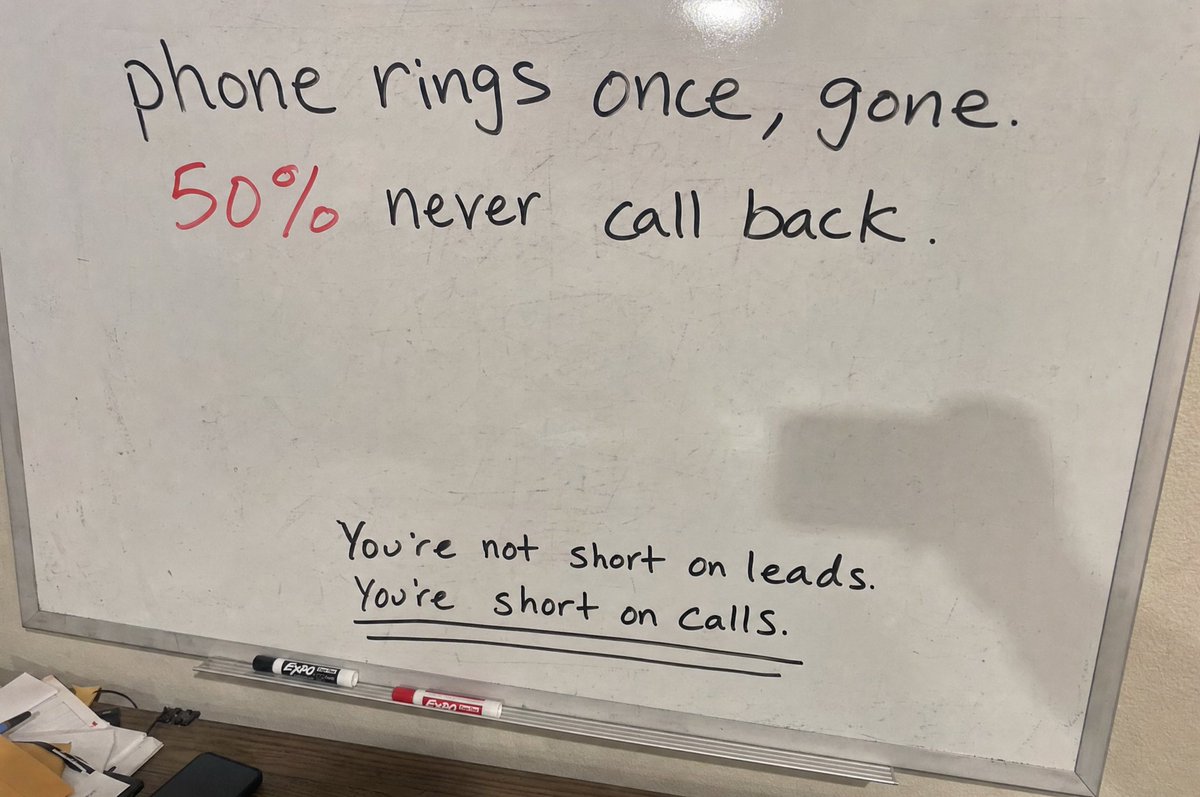 phone rings once, gone.
50% never call back.
You're not short on leads.
You're short on calls.
EXPO
EXPO